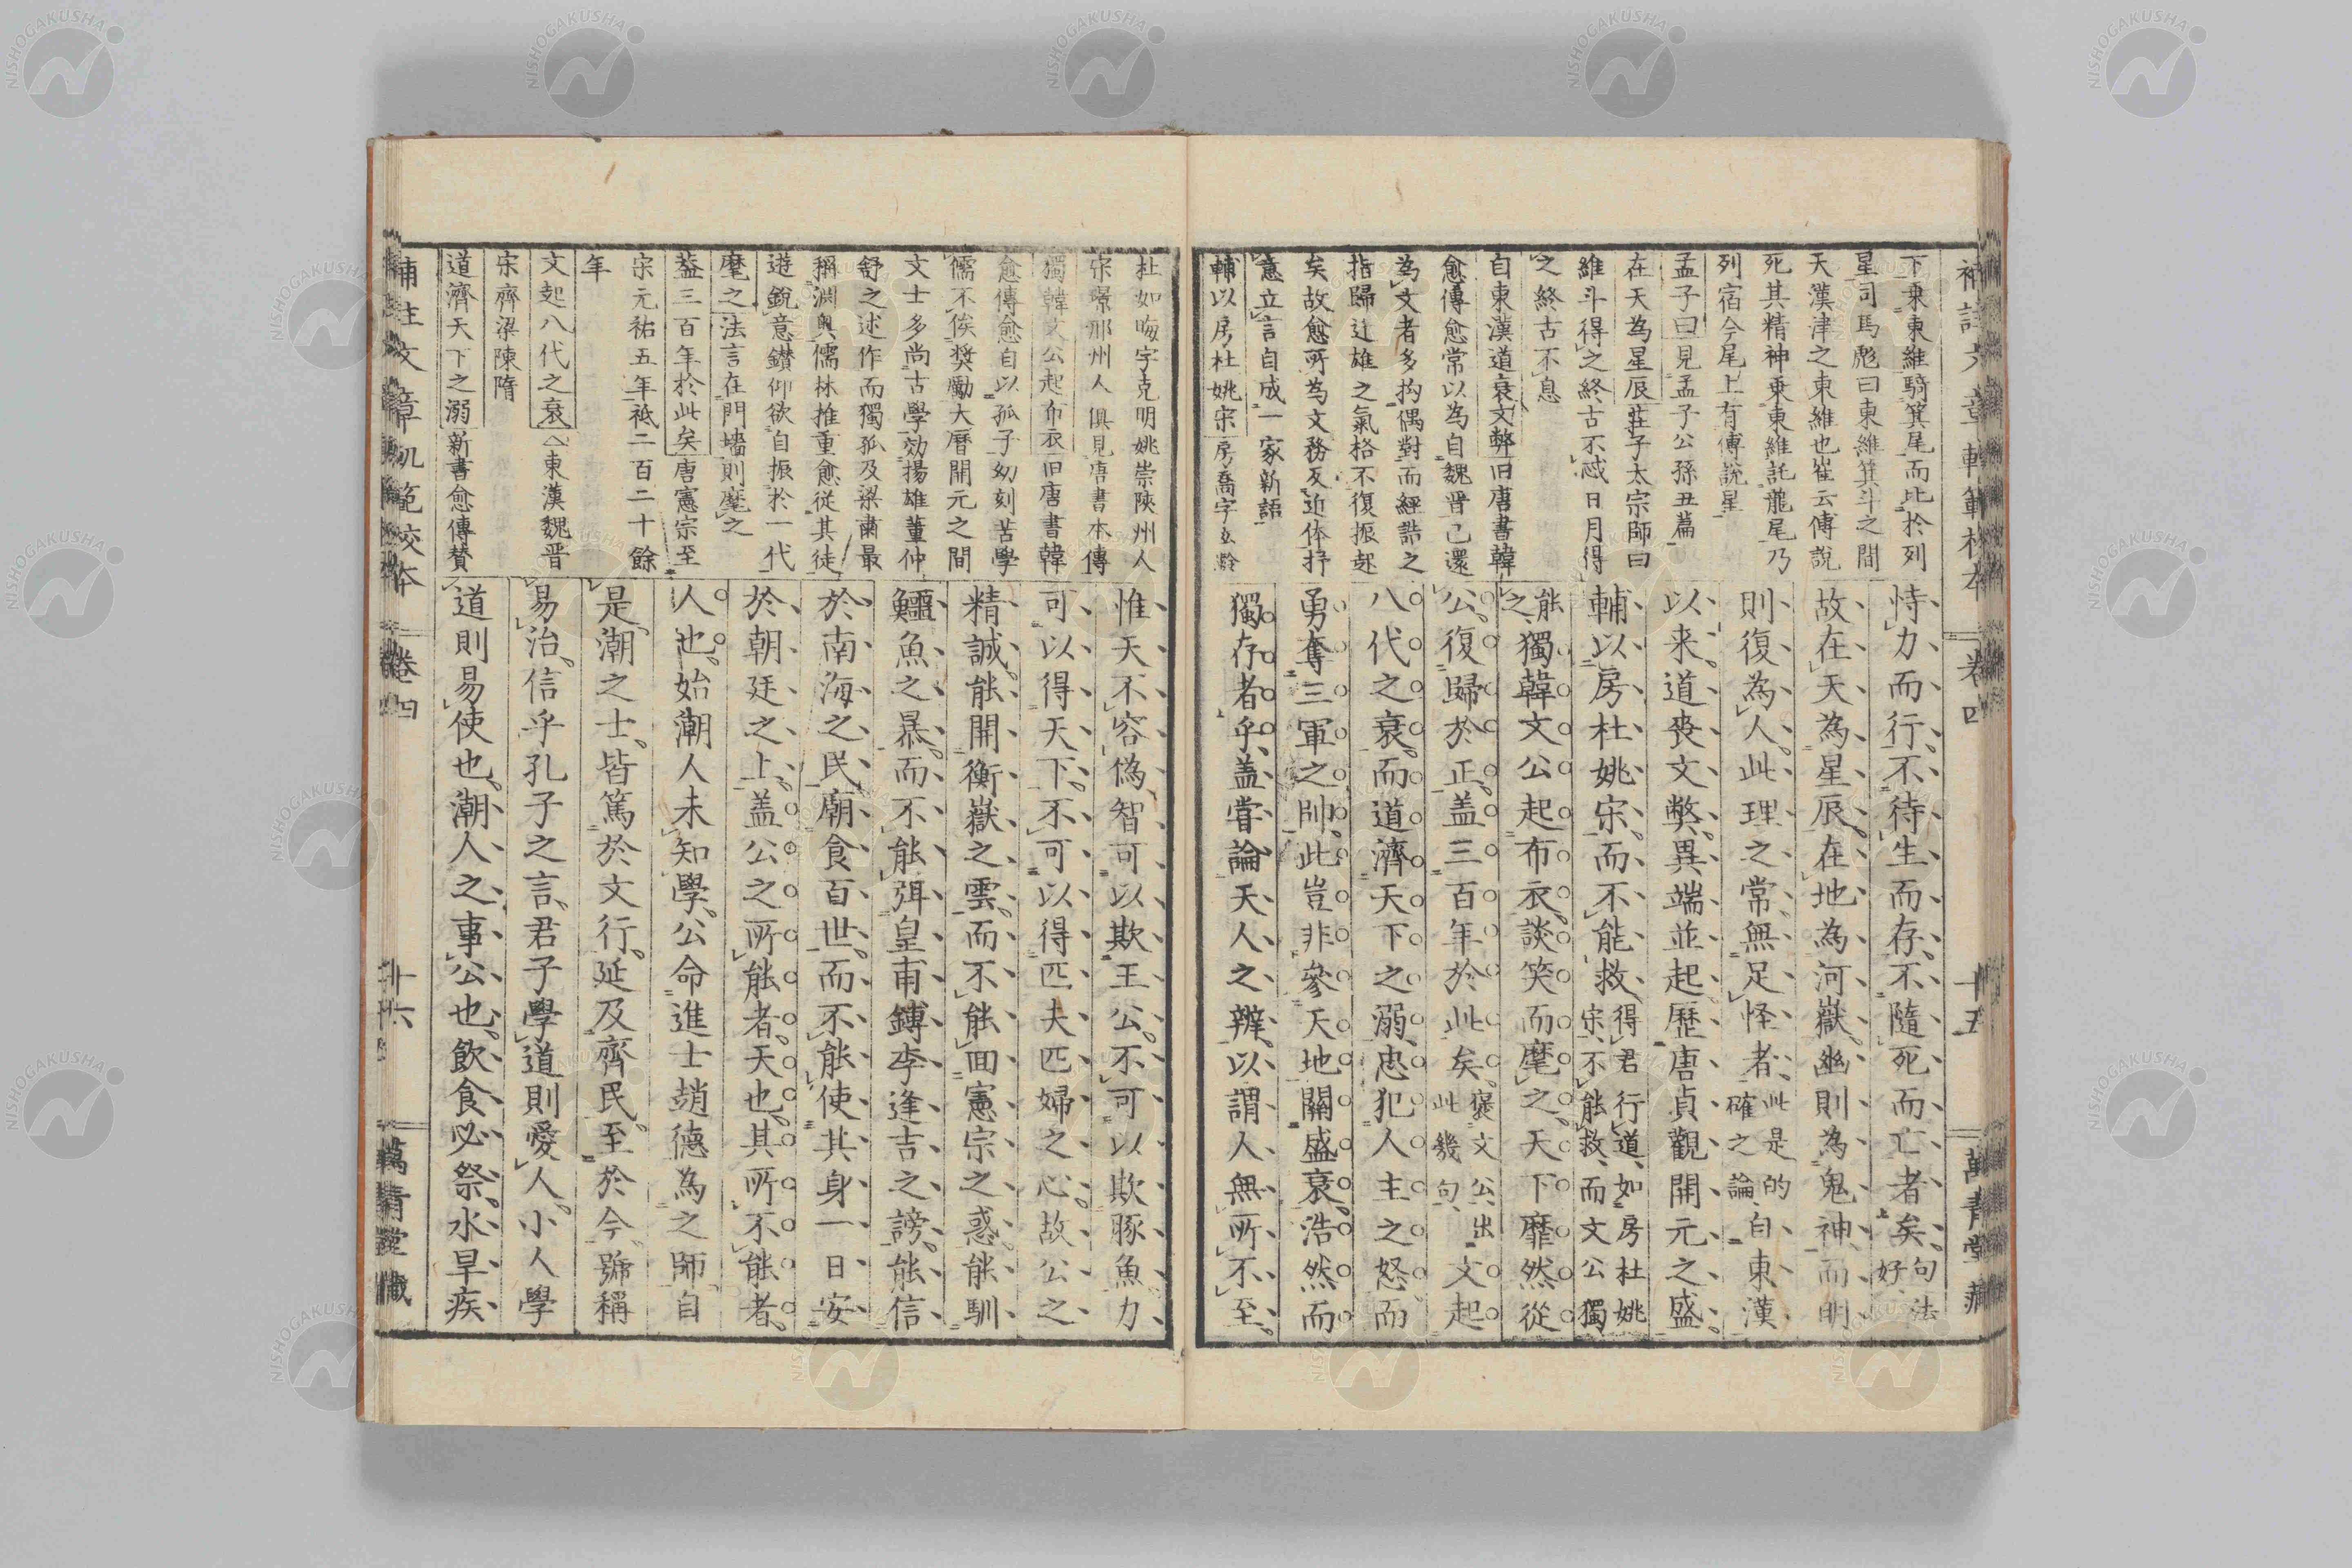 下乘東維騎箕尾而比於列
星司馬彪曰東維箕斗之間
天漢津之東維也崔云傅說
死其精神乘東維託龍尾乃
列宿今尾上有傅說星
孟子曰見孟子公孫丑篇
在天為星辰莊子太宗師曰
維斗得之終古不忒日月得
之終古不息
自東漢道衰文弊旧唐書韓
愈傳愈常以為自魏晋已還
為文者多拘偶對而經誥之
指歸迁雄之氣格不復振起
矣故愈所為文務反近体抒
意立言自成一家新語
輔以房杜姚宋房喬字玄齡
恃力而行不待生而存不隨死而亡者矣句法好
故在天為星辰在地為河嶽幽則為鬼神而明
則復為人此理之常無足怪者此是的確之論自東漢
以来道喪文弊異端並起歷唐貞觀開元之盛
輔以房杜姚宋而不能救得君行道如房杜姚宋不能救而文公獨
能之獨韓文公起布衣談笑而麾之天下靡然從
公復歸於正盖三百年於此矣褒文公出此幾句文起
八代之衰而道濟天下之溺忠犯人主之怒而
勇奪三軍之帥此豈非參天地關盛衰浩然而
獨存者乎盖甞論天人之辨以謂人無所不至
補註文章軌範校本 卷四 十五 萬青堂藏
杜如晦字克明姚崇陝州人
宋璟邢州人俱見唐書本傳
獨韓文公起布衣旧唐書韓
愈傳愈自以孤子幼刻苦學
儒不俟奬勵大曆開元之間
文士多尚古學効揚雄董仲
舒之述作而獨孤及梁肅最
稱淵奥儒林推重愈從其徒
遊銳意鑚仰欲自振於一代
麾之法言在門墻則麾之
盖三百年於此矣唐憲宗至
宋元祐五年祗二百二十餘
年
文起八代之衰八東漢魏晋
宋齊梁陳隋
道濟天下之溺新書愈傳賛
惟天不容偽智可以欺王公不可以欺豚魚力
可以得天下不可以得匹夫匹婦之心故公之
精誠能開衡嶽之雲而不能回憲宗之惑能馴
鱷魚之暴而不能弭皇甫鎛李逢吉之謗能信
於南海之民廟食百世而不能使其身一日安
於朝廷之上盖公之所能者天也其所不能者
人也始潮人未知學公命進士趙德為之師自
是潮之士皆篤於文行延及齊民至於今號稱
易治信乎孔子之言君子學道則愛人小人學
道則易使也潮人之事公也飲食必祭水旱疾
補註文章軌範校本 卷四 十六 萬青堂藏
NISHOGAKUSHA